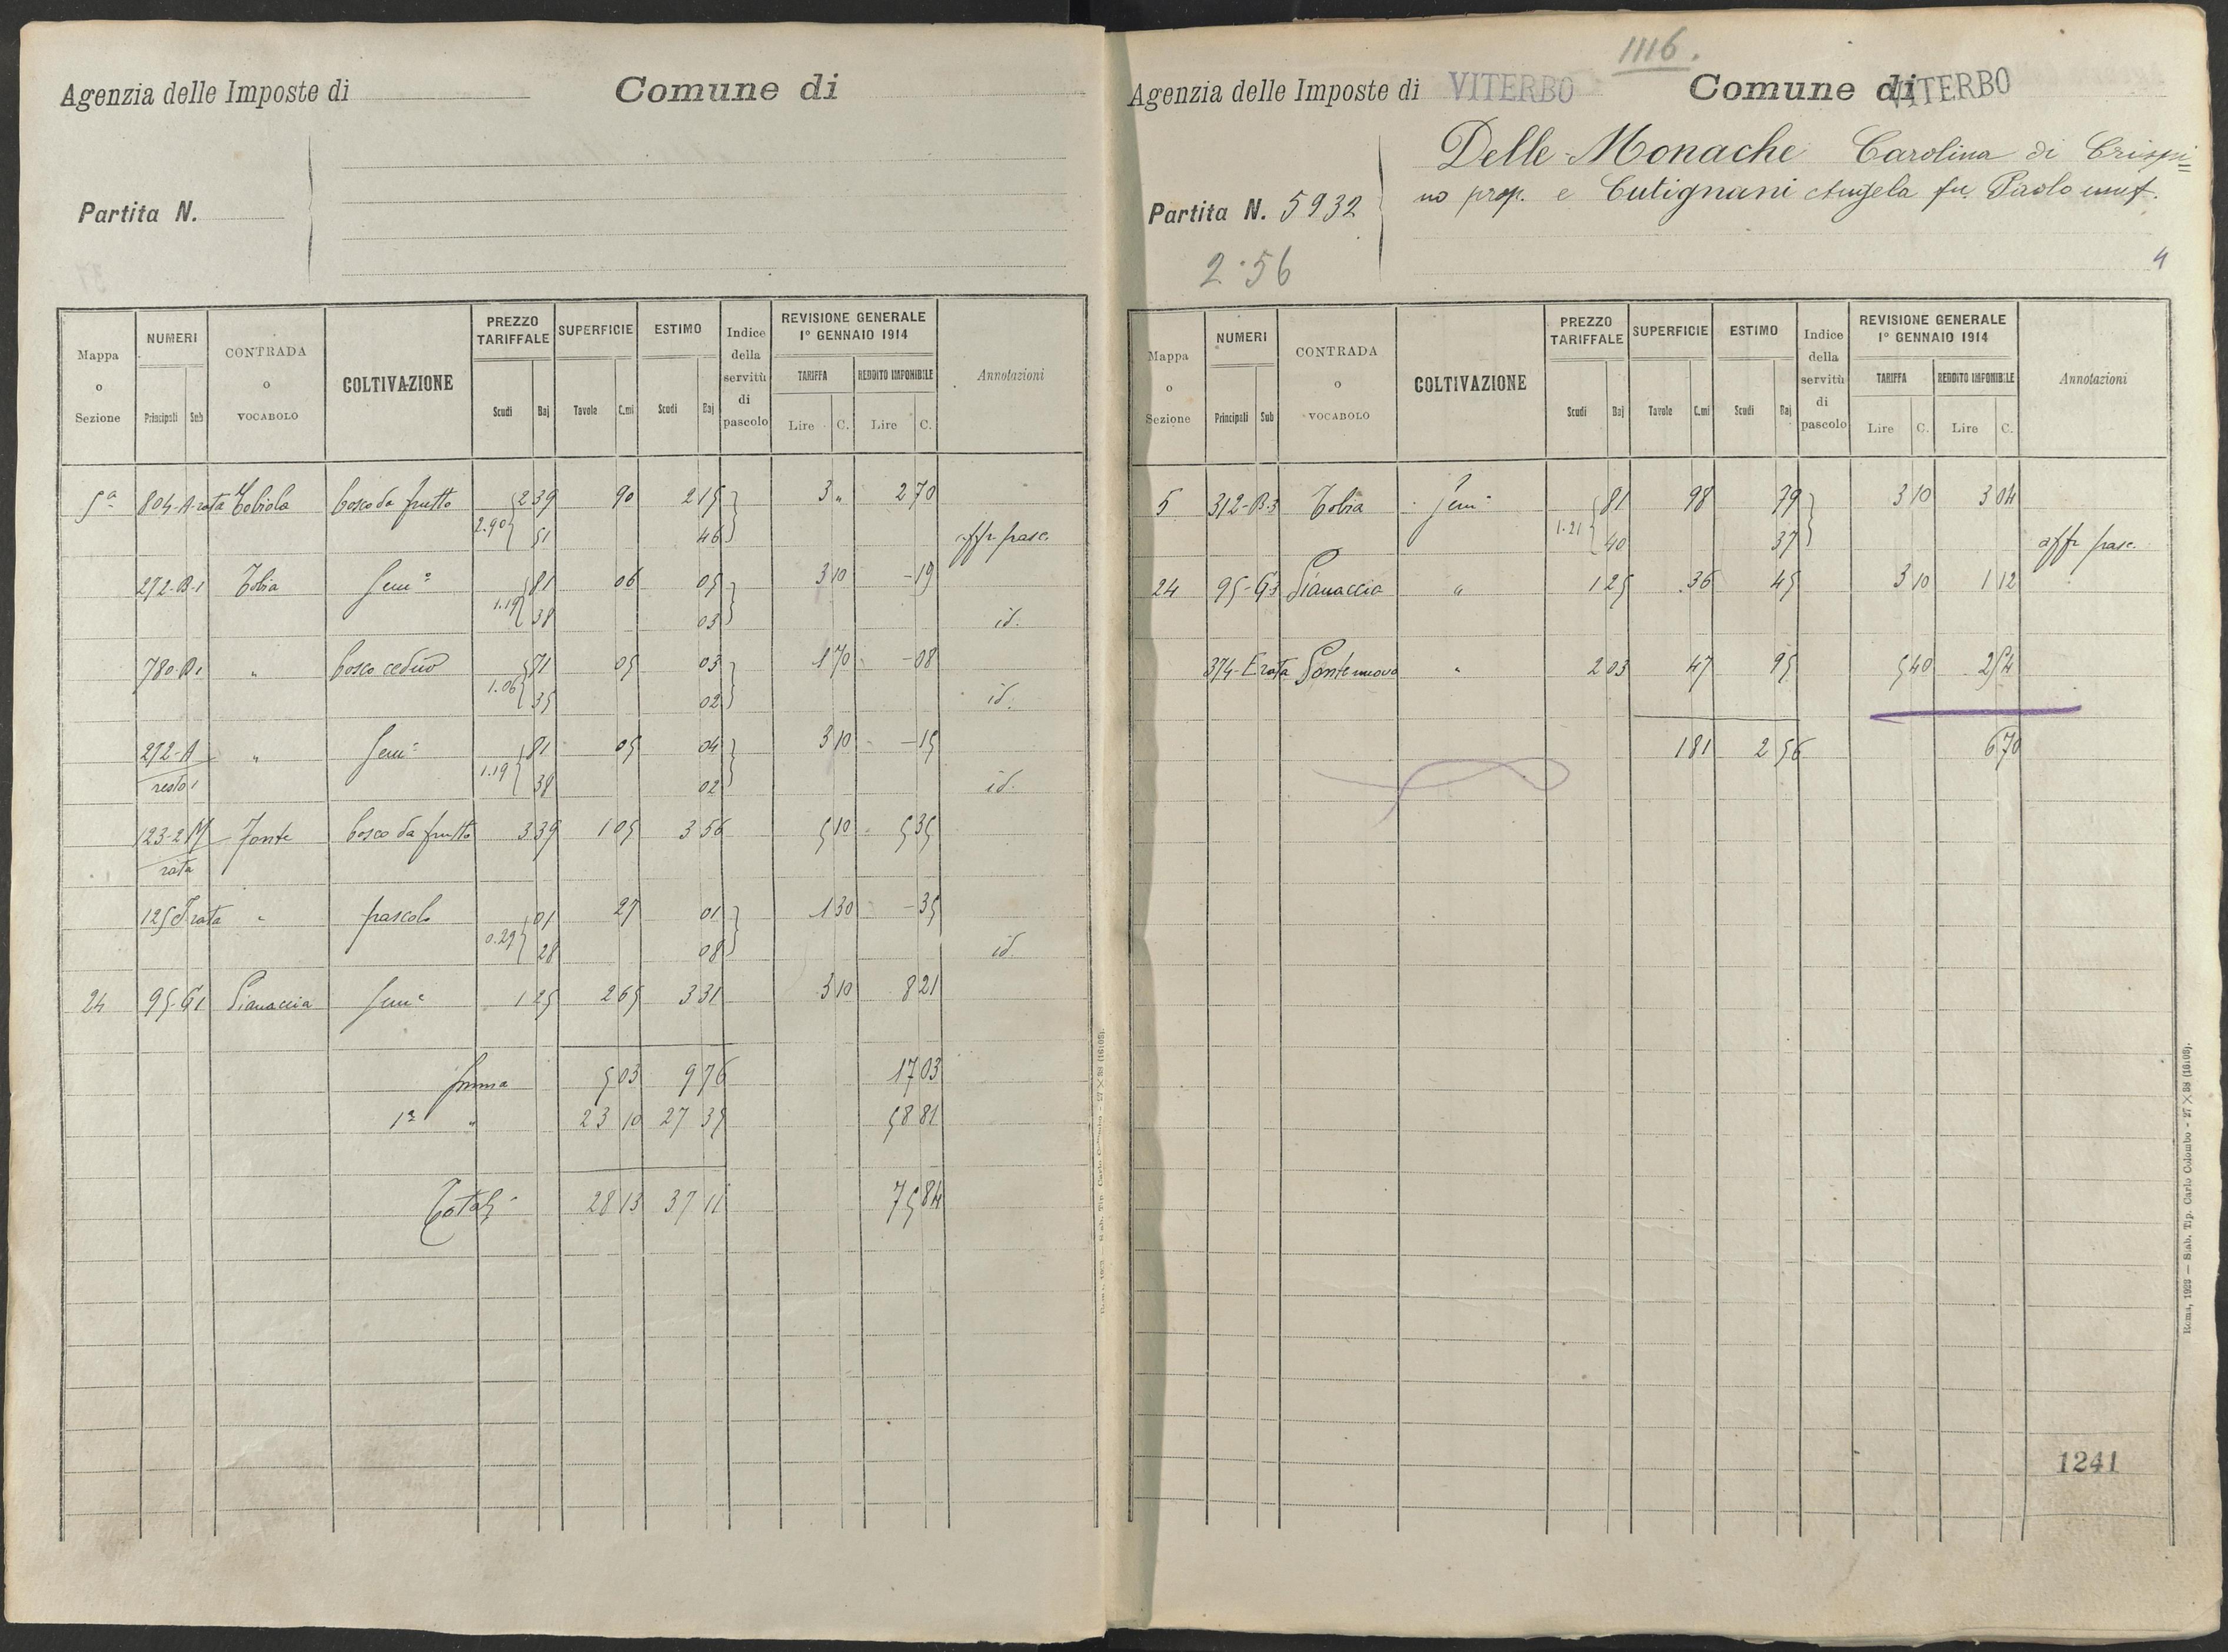 Agenzia delle Imposte di Comune di
Partita N.
Mappa o Sezione
NUMERI
Principali Sub
CONTRADA o VOCABOLO
COLTIVAZIONE
PREZZO TARIFFALE
Scudi Baj
SUPERFICIE
Tavole C.mi
ESTIMO
Scudi Baj
Indice della servitù di pascolo
REVISIONE GENERALE 1° GENNAIO 1914
TARIFFA
Lire C.
REDDITO IMPONIBILE
Lire C.
Annotazioni
5ª 804-A rata Tobiola bosco da frutto 2 39 90 2 15 3 „ 2 70
2.90 51 46 aff. pasc.
272-B-1 Tobia Sem° 81 06 05 3 10 - 19
1.19 38 03 id.
780-B1 " bosco ceduo 71 05 03 1 70 - 08
1.06 35 02 id.
272-A " Sem° 81 05 04 3 10 - 15
resto 1 1.19 38 02 id.
123-2 M Fonte bosco da frutto 3 39 1 05 3 56 5 10 5 35
rata
125 rata " pascolo 01 27 01 1 30 - 35
0.29 28 08 id.
24 95-G1 Pianaccia Sem° 1 25 2 65 3 31 3 10 8 21
Somma 5 03 9 76 17 03
1ª " 23 10 27 35 58 81
Totali 28 13 37 11 75 84
1116.
Agenzia delle Imposte di VITERBO Comune di VITERBO
Delle Monache Carolina di Crispi=
no prop. e Cutignani Angela fu Paolo usuf.
Partita N. 5932
2.56
4
Mappa o Sezione
NUMERI
Principali Sub
CONTRADA o VOCABOLO
COLTIVAZIONE
PREZZO TARIFFALE
Scudi Baj
SUPERFICIE
Tavole C.mi
ESTIMO
Scudi Baj
Indice della servitù di pascolo
REVISIONE GENERALE 1° GENNAIO 1914
TARIFFA
Lire C.
REDDITO IMPONIBILE
Lire C.
Annotazioni
5 312-B.3 Tobia Sem° 81 98 79 3 10 3 04
1.21 40 37 aff. pasc.
24 95-G3 Pianaccia " 1 25 36 45 3 10 1 12
374-E rata Pontenuovo " 2 03 47 95 5 40 2 54
1 81 2 56 6 70
1241
Roma, 1923 — Stab. Tip. Carlo Colombo - 27 × 38 (16108).